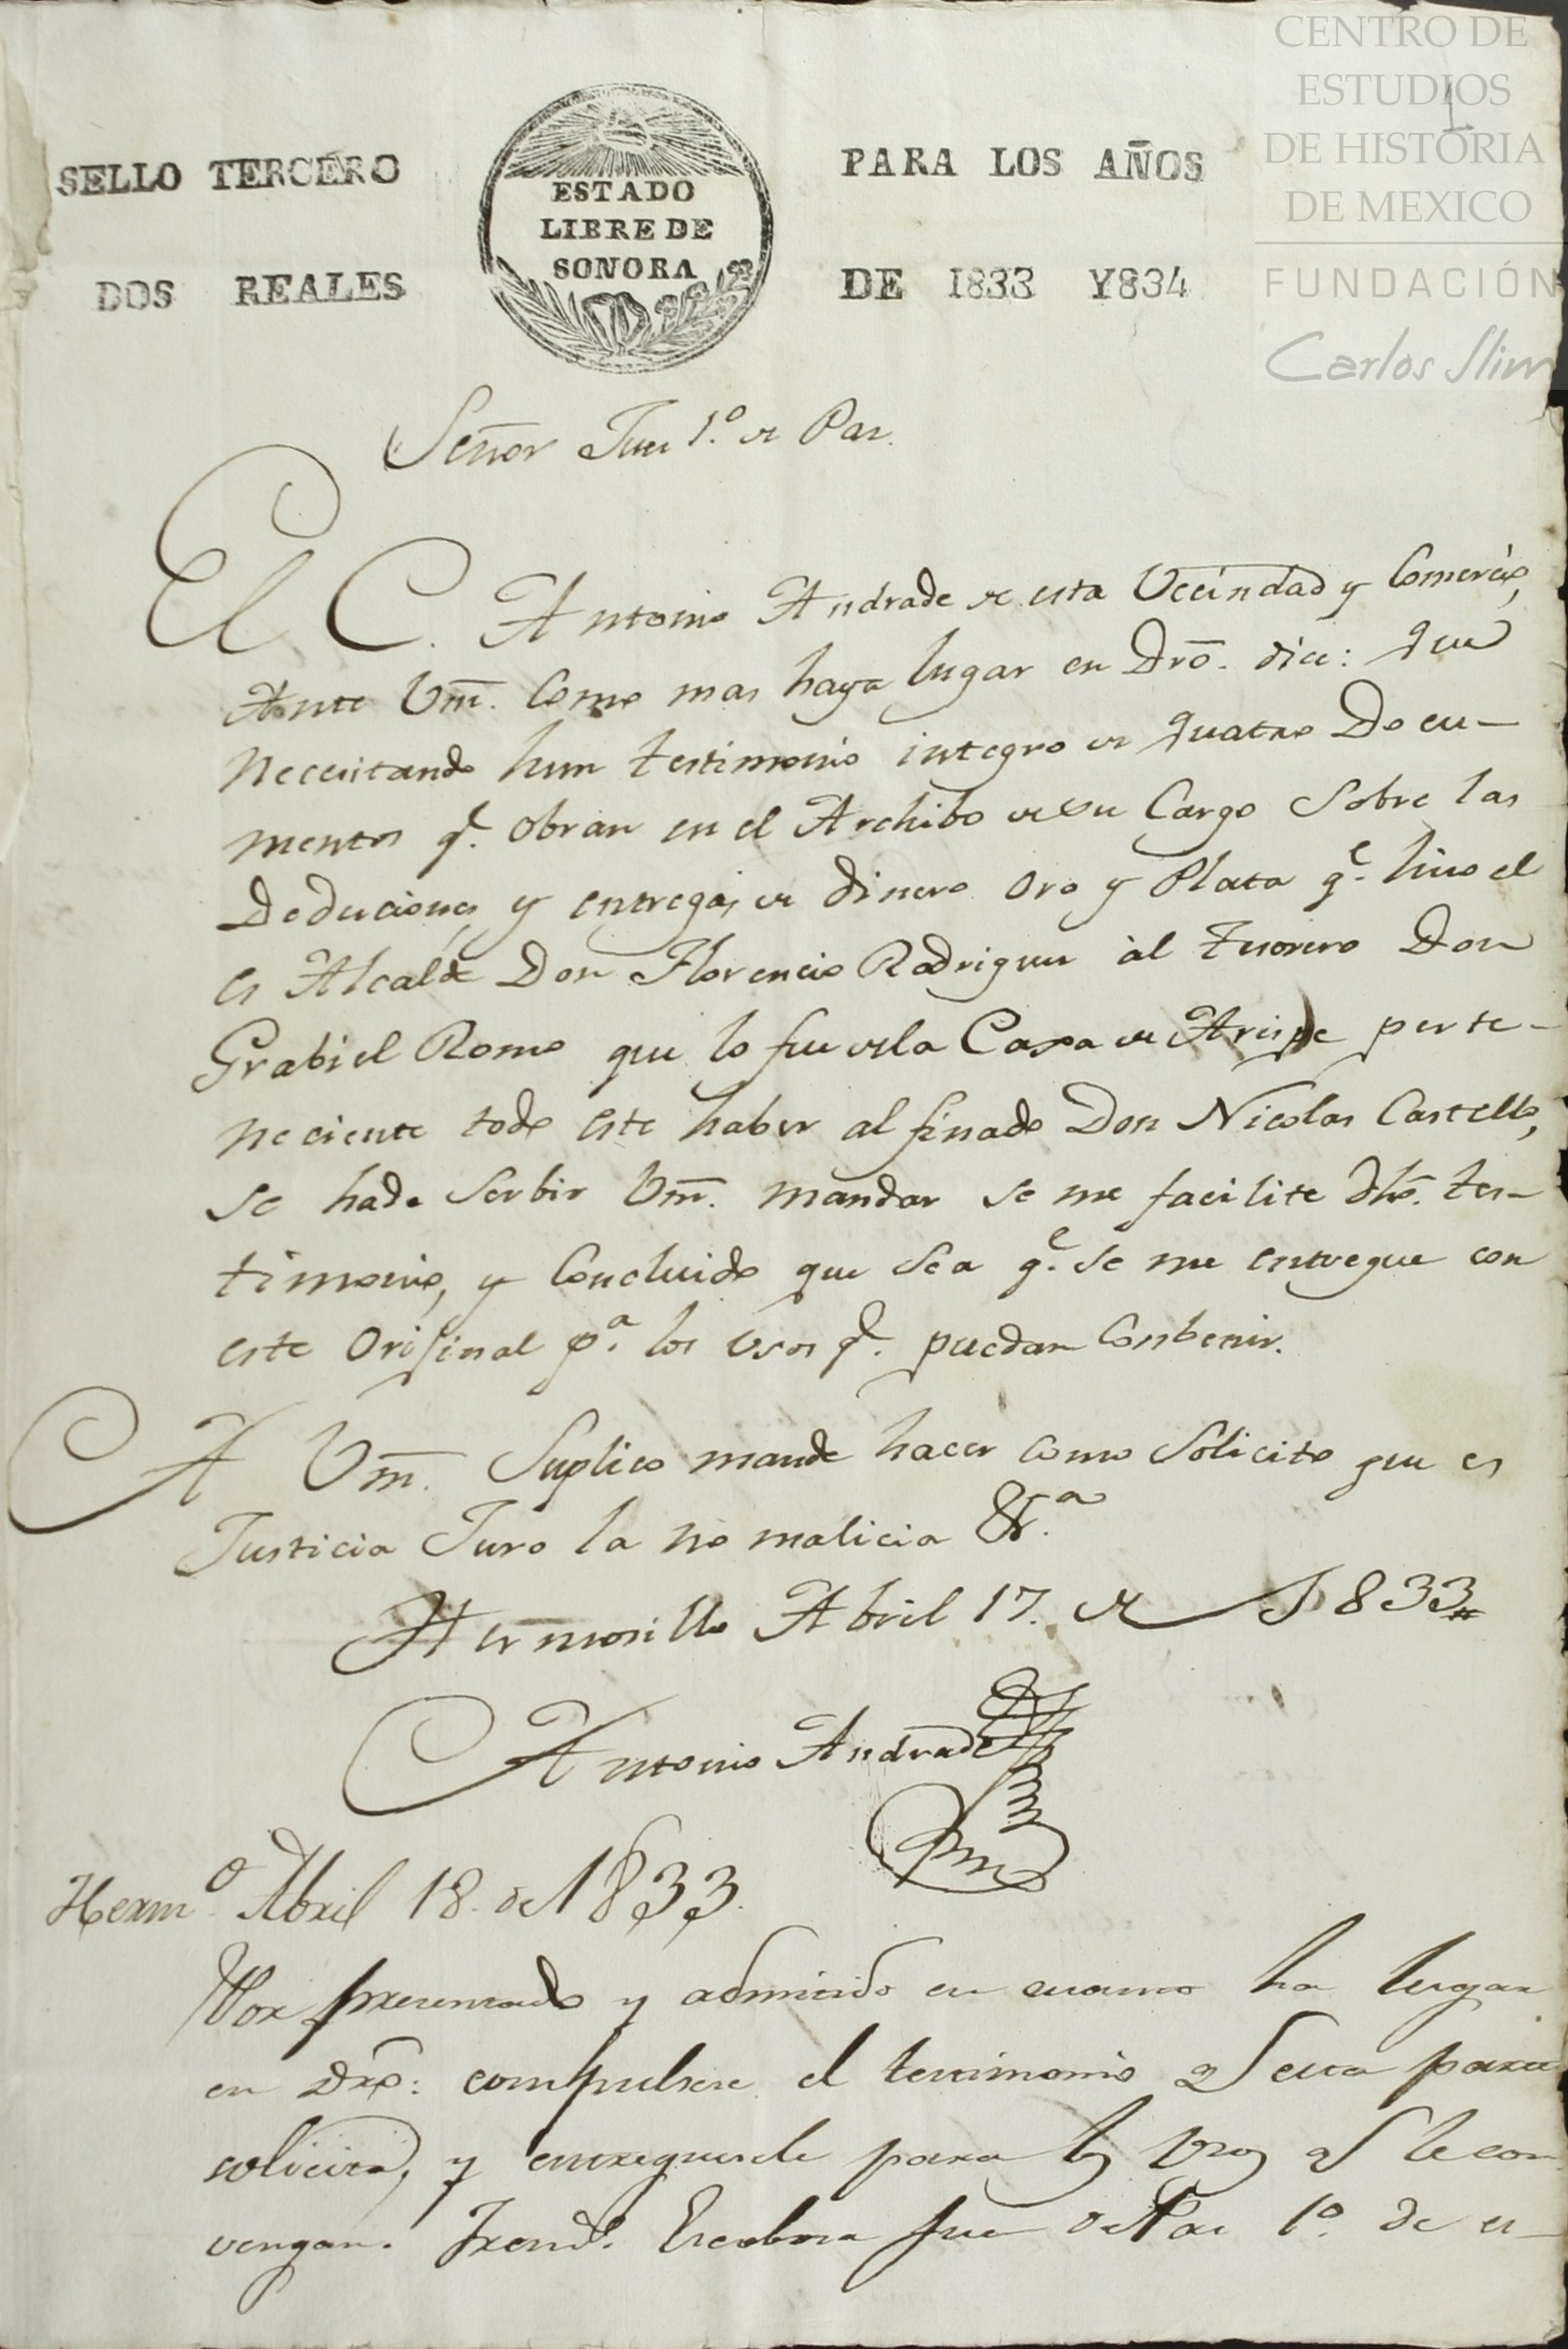 CENTRO DE
ESTUDIOS
DE HISTORIA
DE MEXICO
FUNDACIÓN
Carlos Slim
1
SELLO TERCERO
DOS REALES
ESTADO
LIBRE DE
SONORA
PARA LOS AÑOS
DE 1833 Y834
Señor Juez 1.º de Paz.
El C. Antonio Andrade de esta Vecindad y Comercio,
Ante Vm. Como mas haya lugar en Dro. dice: que
Necesitando hun testimonio integro de quatro Docu-
mentos q.e obran en el Archibo de su Cargo Sobre las
Deduciones y entregas de dinero Oro y Plata q.e hizo el
es Alcalde Don Florencio Rodriguez àl tesorero Don
Grabiel Romo que lo fue de la Caxa de Arispe perte-
neciente todo este haber al finado Don Nicolas Castello,
se hade Serbir Vm. mandar se me facilite dho. tes-
timonio, y Concluido que sea q.e se me entregue con
este Orijinal p.a los Usos q.e puedan Conbenir.
A Vm. Suplico mande hacer como Solicito que es
Justicia Juro la no malicia &.a
Hermosillo Abril 17. de 1833
Antonio Andrade
Herm.o Abril 18. de 1833.
Por presentado y admitido en cuanto ha lugar
en Dro: compulsese el testimonio q.e esta parte
solicita, y entreguesele para los usos q.e le con
vengan. Escobosa Juez de Paz 1.º de es-